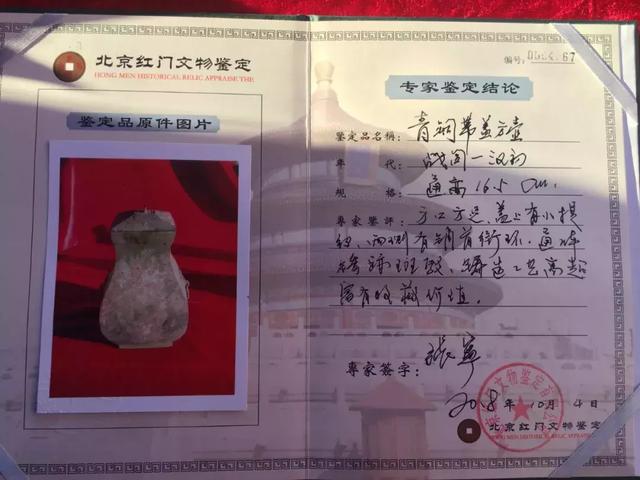 北京红门文物鉴定
HONG MEN HISTORICAL RELIC APPRAISE THE
鉴定品原件图片
编号:
67
专家鉴定结论
鉴定品名稱: 青铜带盖方壶
年 代 战国一汉初
規 格: 通高16.5 Cm.
專家鉴評: 方口方足,盖上有小提
纽、两侧有铜首衔环.通体
绿锈斑驳、铸造工艺高超
富有收藏价值.
專家签字: 張寧
2018年10月4日
北京红门文物鉴定
HONG MEN HISTORICAL RELIC APPRAISE THE